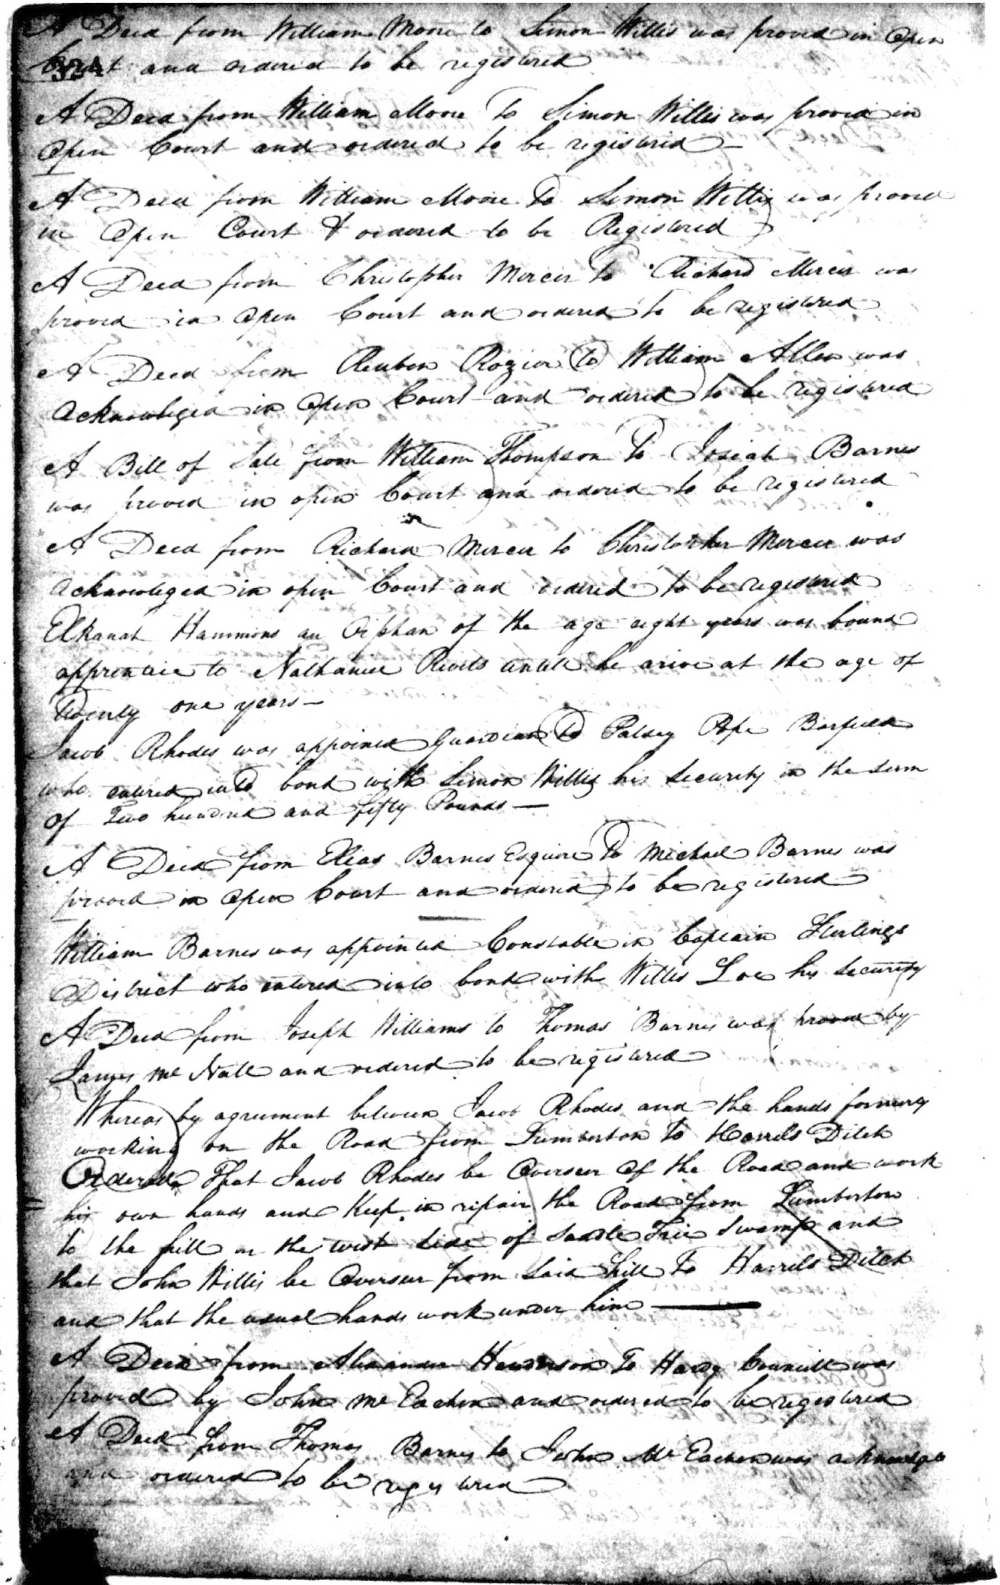 A Deed from William Moore to Simon Willis was proved in Open
Court and ordered to be registered
324
A Deed from William Moore To Simon Willis was proved in
Open Court and ordered to be registered —
A Deed from William Moore To Simon Willis was proved
in Open Court & ordered to be Registered
A Deed from Christopher Mercer To Richard Mercer was
proved in Open Court and ordered to be registered
A Deed from Reuben Rozier to William Allen was
Acknowleged in Open Court and ordered to be registered
A Bill of Sale from William Thompson To Josiah Barnes
was proved in open Court and ordered to be registered
A Deed from Richard Mercer to Christopher Mercer was
Acknowleged in open Court and ordered to be registered
Elkanah Hammons an Orphan of the age eight years was bound
apprentice to Nathaniel Revels untill he arive at the age of
Twenty one years —
Jacob Rhodes was appointed Guardian To Patsey Pope Barfield
who entered into bond with Simon Willis his Security in the Sum
of Two hundred and fifty Pounds —
A Deed from Elias Barnes Esquire To Michael Barnes was
proved in Open Court and ordered to be registered
William Barnes was appointed Constable in Captain
District who entered into bond with Willis Loe his Security
A Deed from Joseph Williams to Thomas Barnes was proved by
James Mc Natt and ordered to be registered
Whereas by agreement between Jacob Rhodes and the hands formerly
working on the Road from Lumberton To Harrels Ditch
Ordered That Jacob Rhodes be Overseer of the Road and work
his own hands and Keep in repair the Road from Lumberton
to the hill on the west side of Saddle Tree Swamp and
that John Willis be Overseer from Said hill To Harrels Ditch
and that the usual hands work under him —
A Deed from Alexander Henderson To Hardy Councill was
proved by John Mc Eachen and ordered to be registered
A Deed from Thomas Barnes to John Mc Eachen was acknowlged
and ordered to be registered